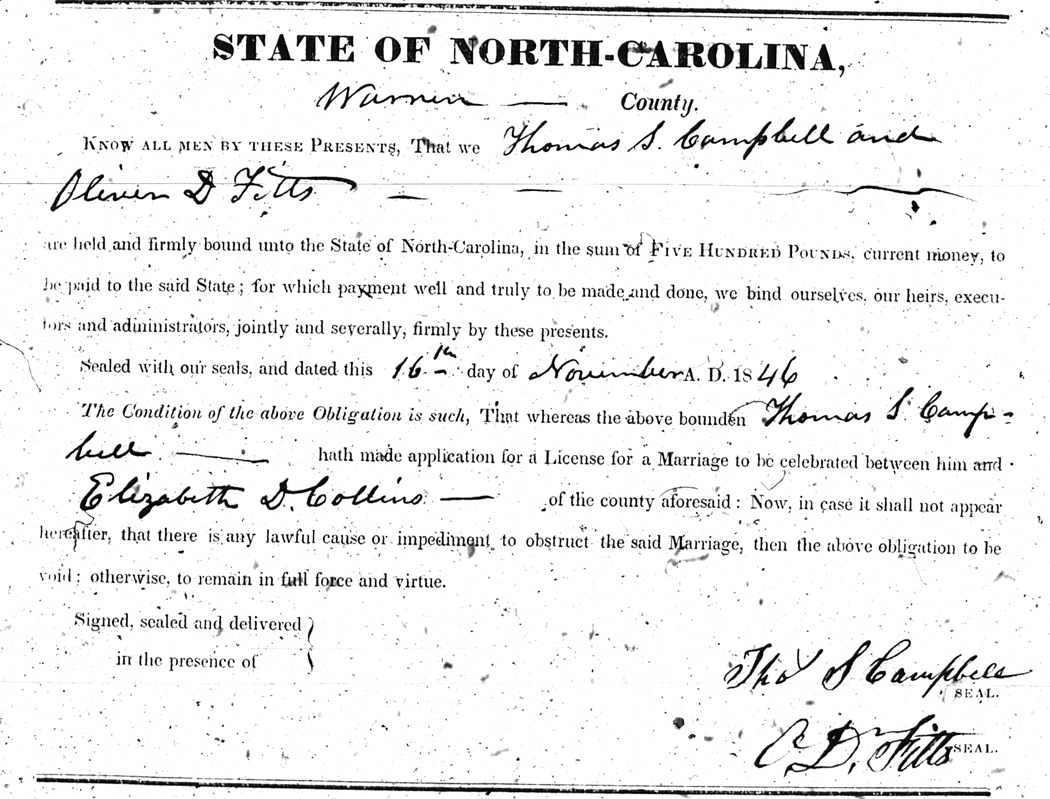 STATE OF NORTH-CAROLINA,
Warren — County.
KNOW ALL MEN BY THESE PRESENTS, That we Thomas S. Campbell and
Oliver D Fitts —
are held and firmly bound unto the State of North-Carolina, in the sum of FIVE HUNDRED POUNDS, current money, to
be paid to the said State; for which payment well and truly to be made and done, we bind ourselves, our heirs, execu-
tors and administrators, jointly and severally, firmly by these presents.
Sealed with our seals, and dated this 16th day of November A. D. 1846
The Condition of the above Obligation is such, That whereas the above bounden Thomas S Camp-
bell — hath made application for a License for a Marriage to be celebrated between him and
Elizabeth D. Collins — of the county aforesaid: Now, in case it shall not appear
hereafter, that there is any lawful cause or impediment to obstruct the said Marriage, then the above obligation to be
void; otherwise, to remain in full force and virtue.
Signed, sealed and delivered }
in the presence of
Thos S Campbell
SEAL.
O. D. Fitts SEAL.